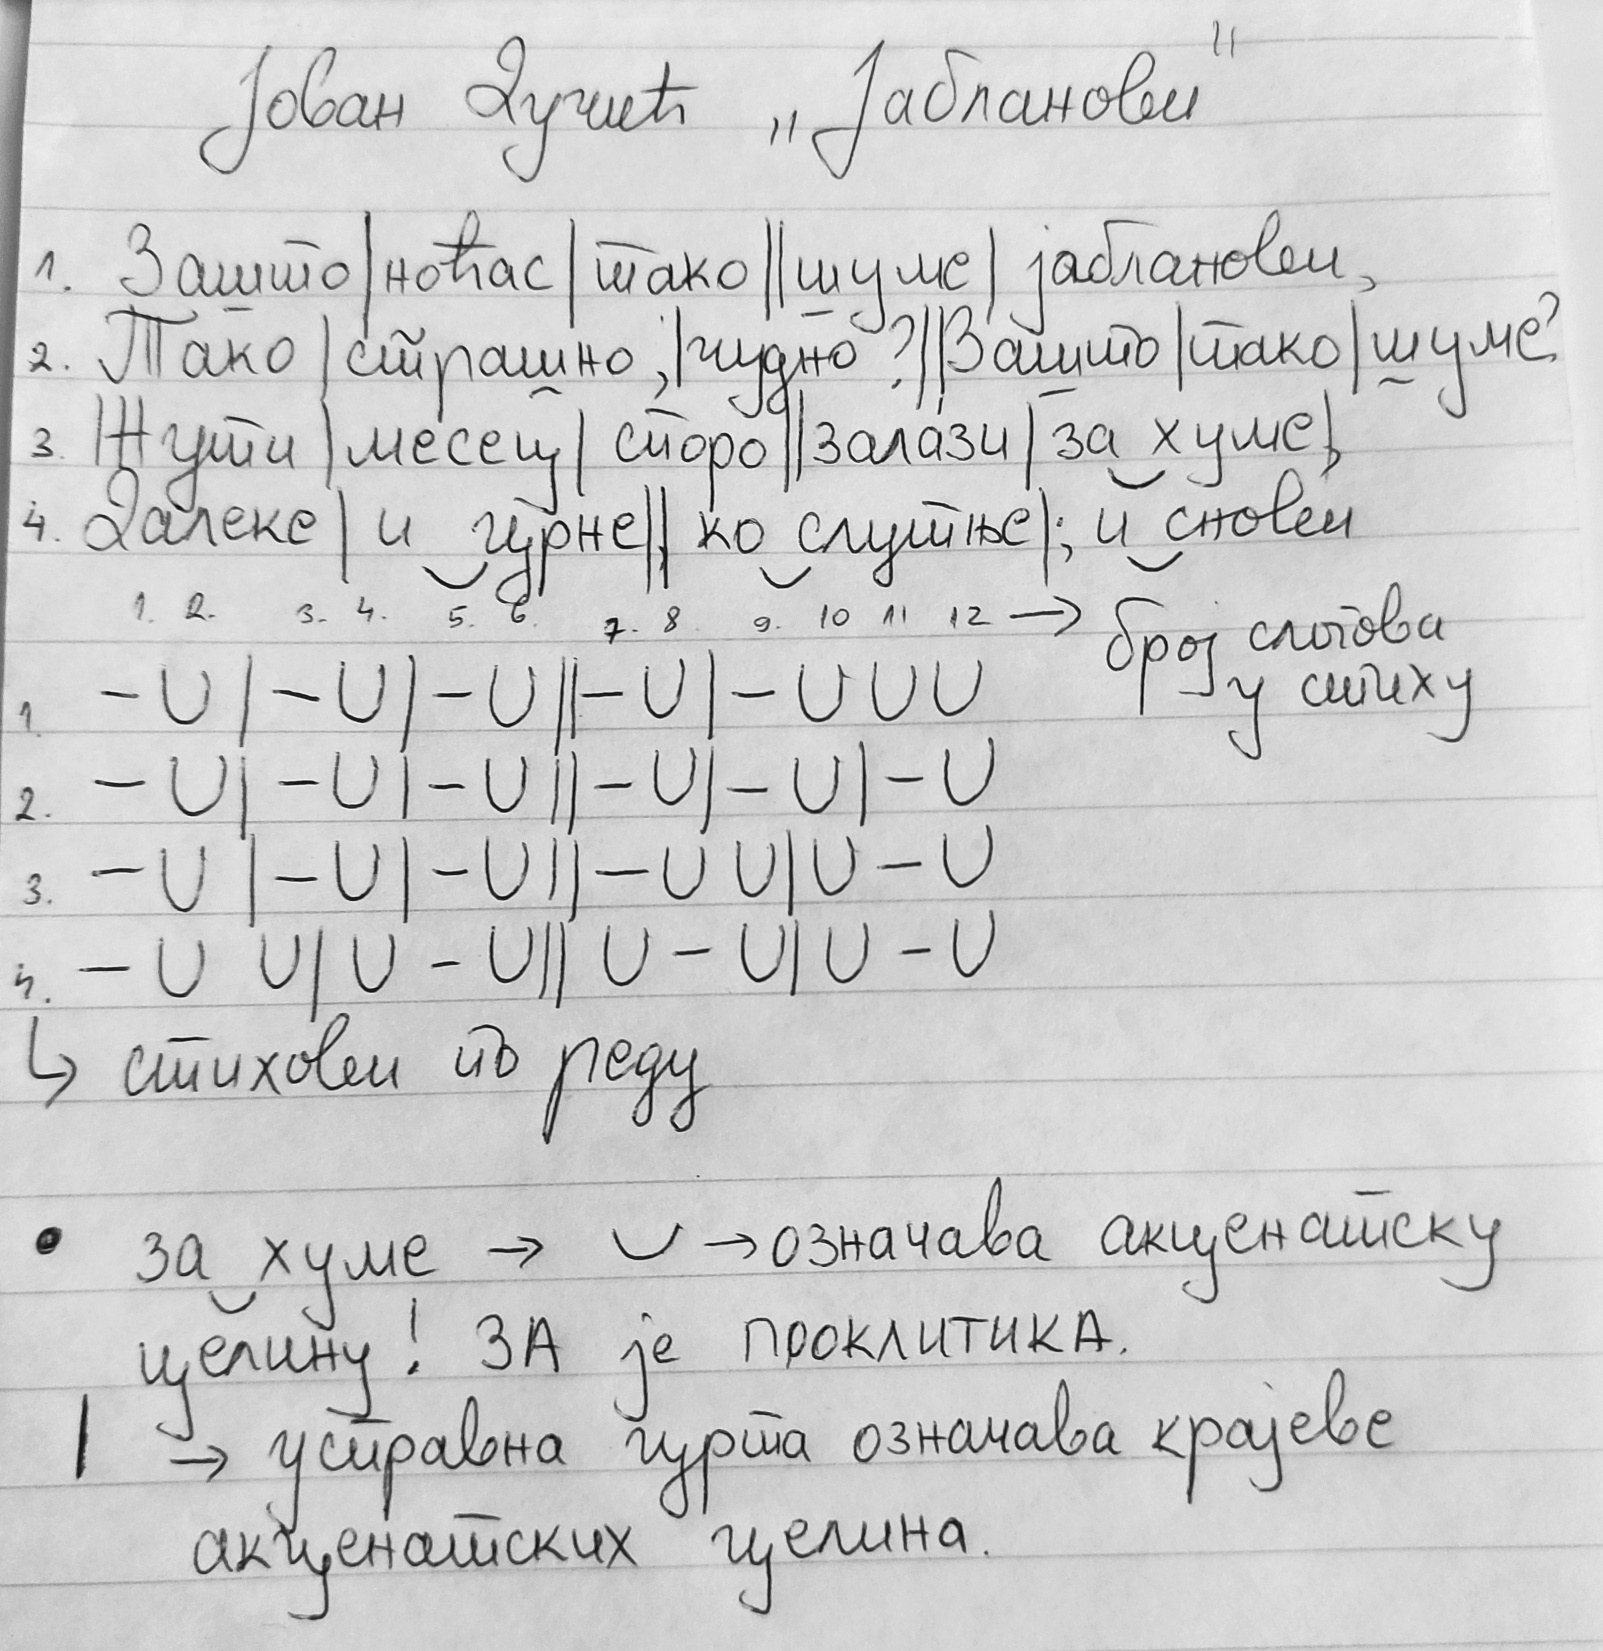 Јован Дучић „Јабланови"
1. Зашто | ноћас | тако || шуме | јабланови,
2. Тако | страшно, | чудно? || Зашто | тако | шуме?
3. Жути | месец | споро || залази | за хуме |,
4. Далеке | и црне ||, ко слутње |; и снови
1. 2. 3. 4. 5. 6. 7. 8. 9. 10 11 12 → број слогова
у стиху
1. – U | – U | – U || – U | – U U U
2. – U | – U | – U || – U | – U | – U
3. – U | – U | – U || – U U | U – U
4. – U U | U – U || U – U | U – U
↳ стихови по реду
• за хуме → ‿ → означава акценатску
целину! ЗА је ПРОКЛИТИКА.
| → усправна црта означава крајеве
акценатских целина.